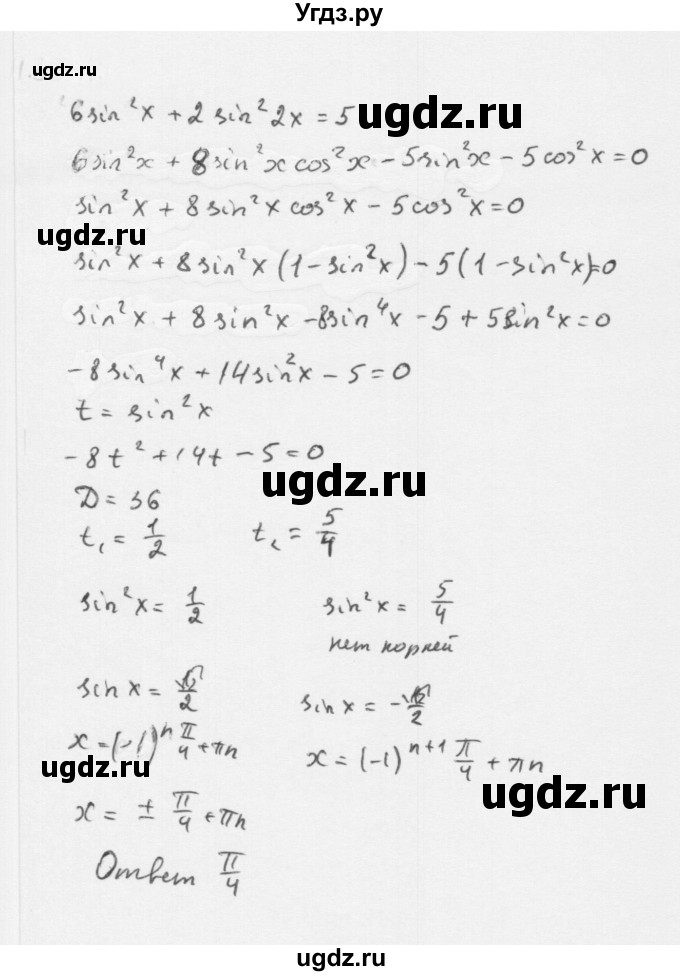 Угдз.ру
6sin²x + 2 sin²2x = 5
ugdz.ru
6sin²x + 8sin²x cos²x - 5sin²x - 5cos²x = 0
sin²x + 8sin²x cos²x - 5cos²x = 0
ugdz.ru
sin²x + 8sin²x (1 - sin²x) - 5(1 - sin²x) = 0
sin²x + 8sin²x - 8sin⁴x - 5 + 5sin²x = 0
-8sin⁴x + 14sin²x - 5 = 0
t = sin²x
-8t² + 14t - 5 = 0
ugdz.ru
D = 36
t₁ = 1/2 t₂ = 5/4
sin²x = 1/2 sin²x = 5/4
ugdz.ru
нет корней
sin x = /2 sin x = - /2
x = (-1)ⁿ π/4 + πn x = (-1)ⁿ⁺¹ π/4 + πn
ugdz.ru
ugdz.ru
x = ± π/4 + πn
Ответ π/4
ugdz.ru